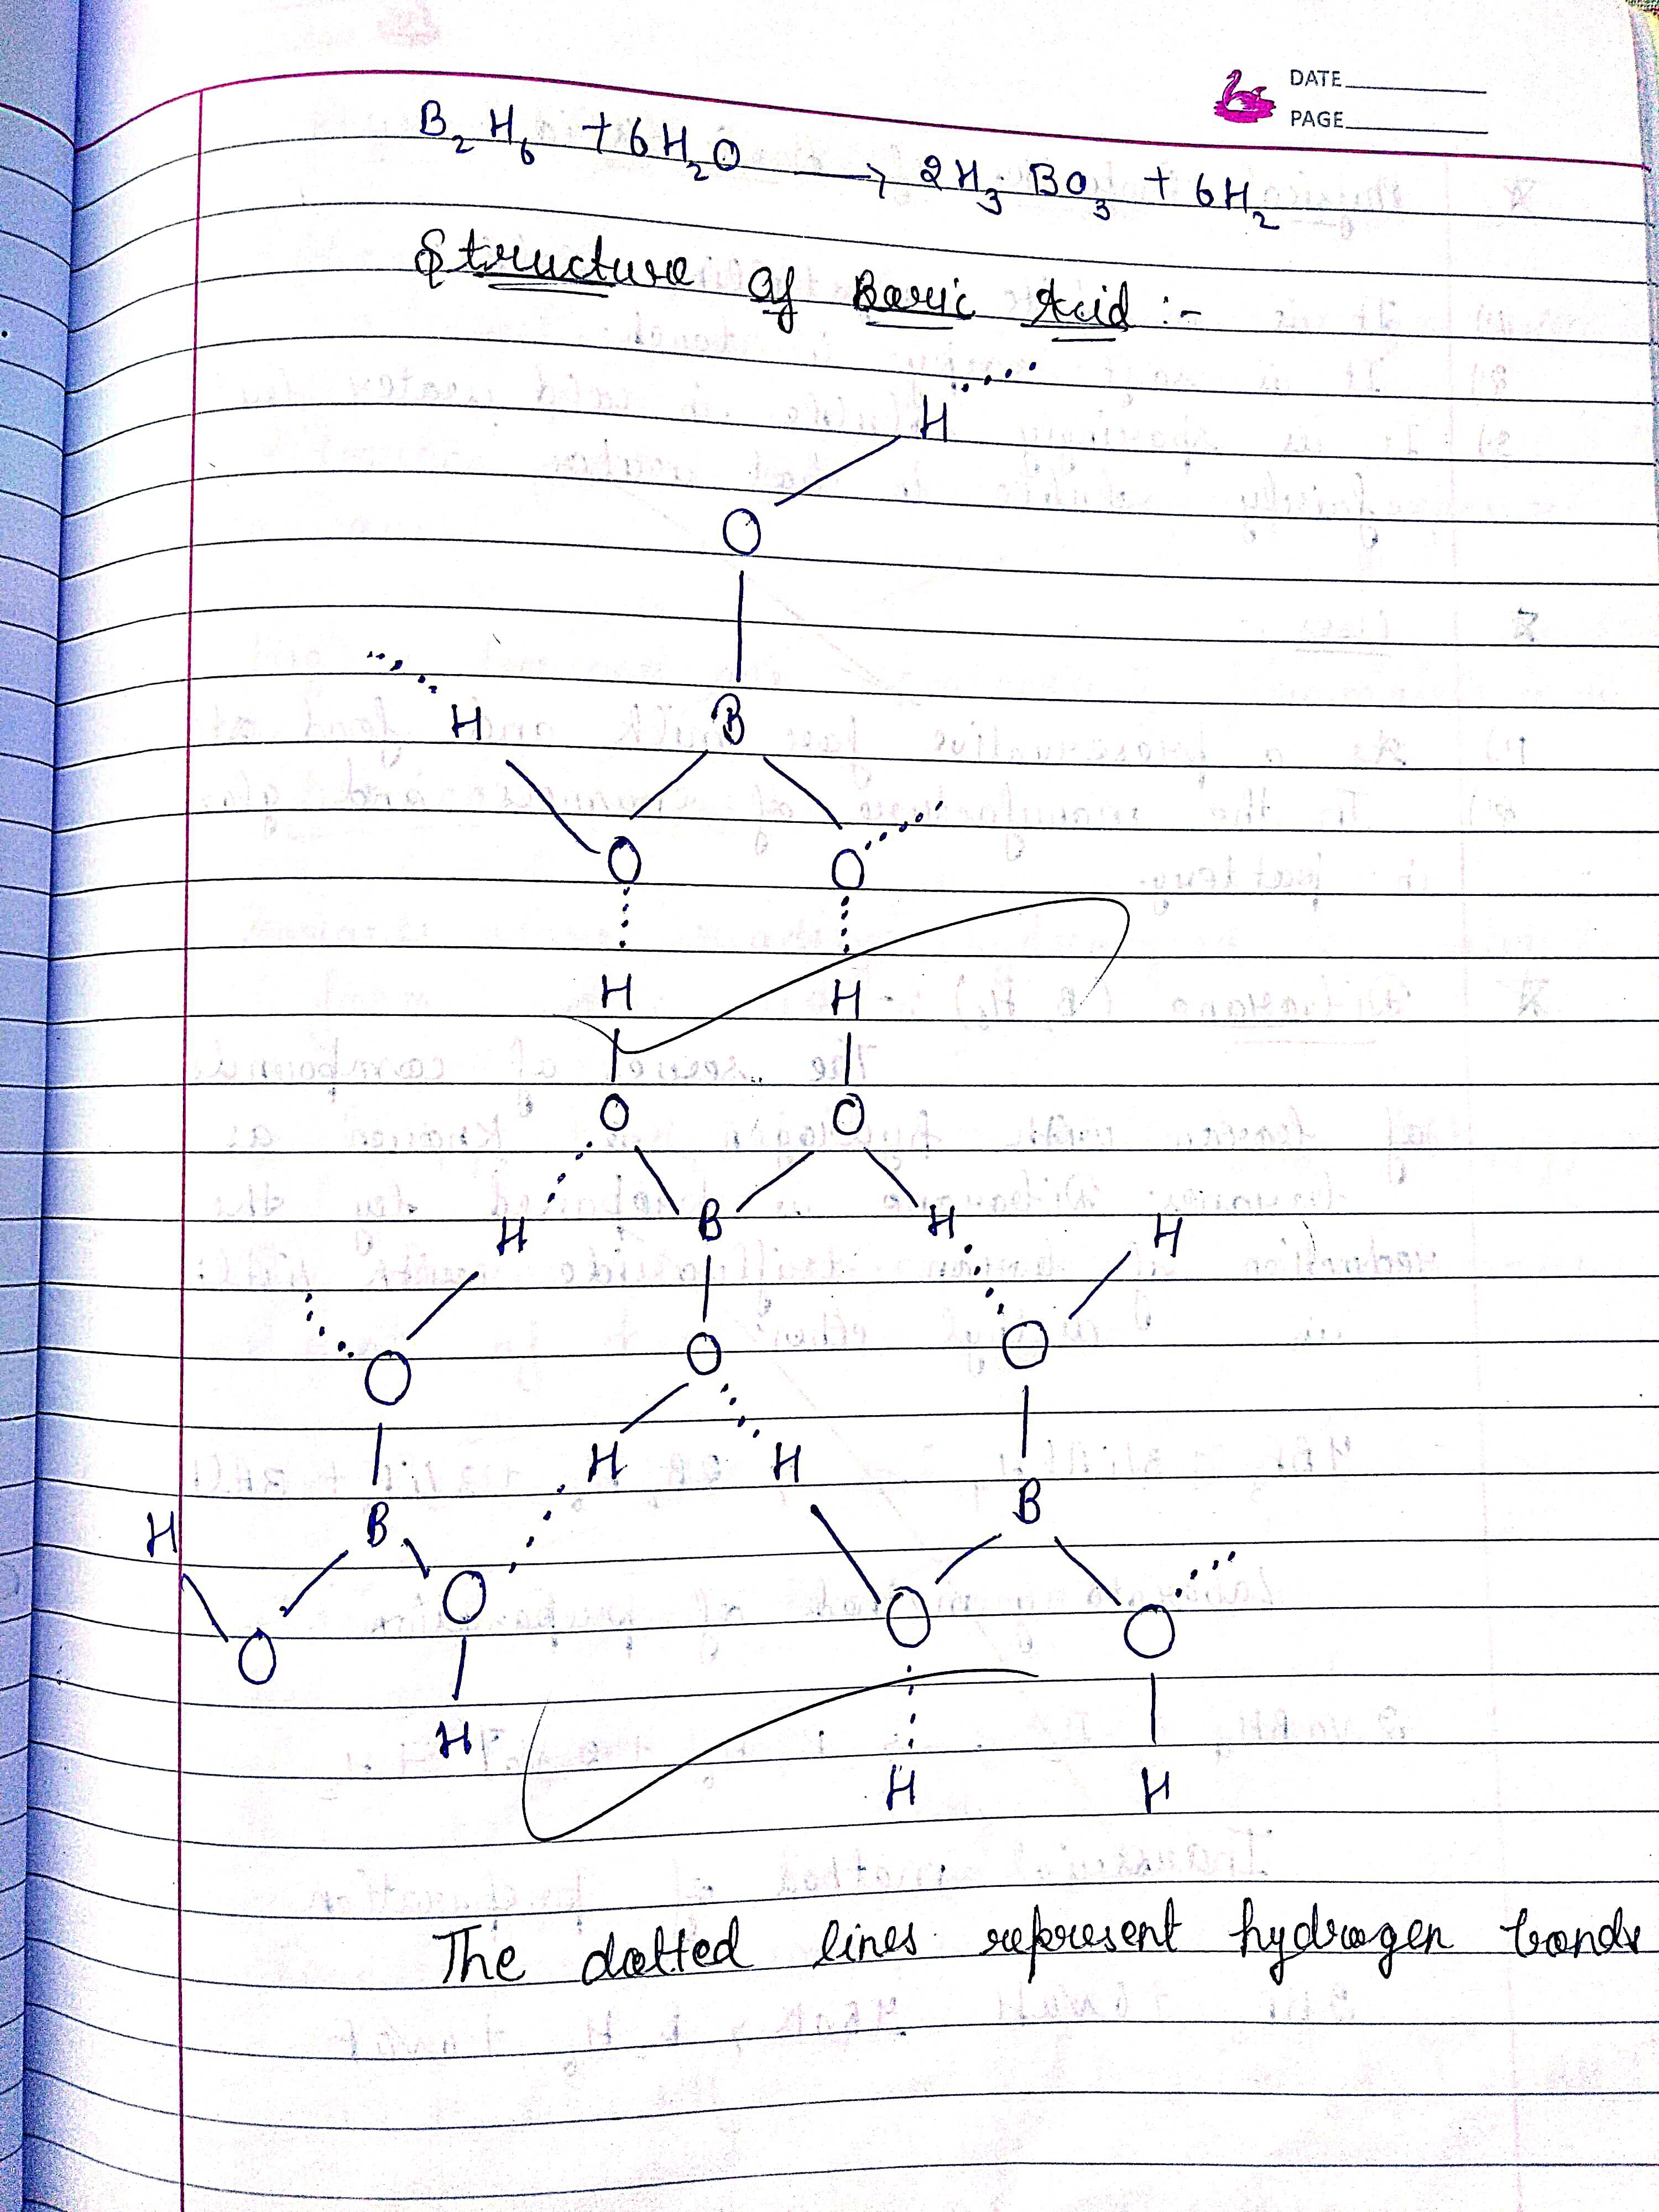 DATE
PAGE
B₂H₆ + 6H₂O → 2H₃BO₃ + 6H₂
Structure of Boric Acid :-
H
O
H B
O O
H H
O O
H B H H
O O O
H H
B
H B
O O O O
H
H H
The dotted lines represent hydrogen bonds